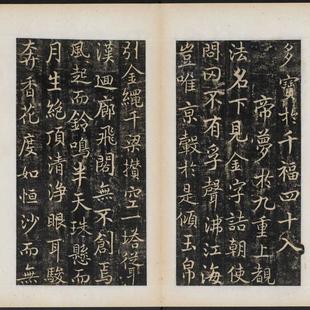 多寶於千福四十入
帝夢於九重上覩
法名下見金字詰朝使
問罔不有孚聲沸江海
豈唯京轂於是傾玉帛
引金繩千梁攢空一塔從聳
漢迴廊飛閣無不創焉
風起而鈴鳴半天珠懸而
月生絶頂清淨眼耳駿
奔香花度如恒沙而無